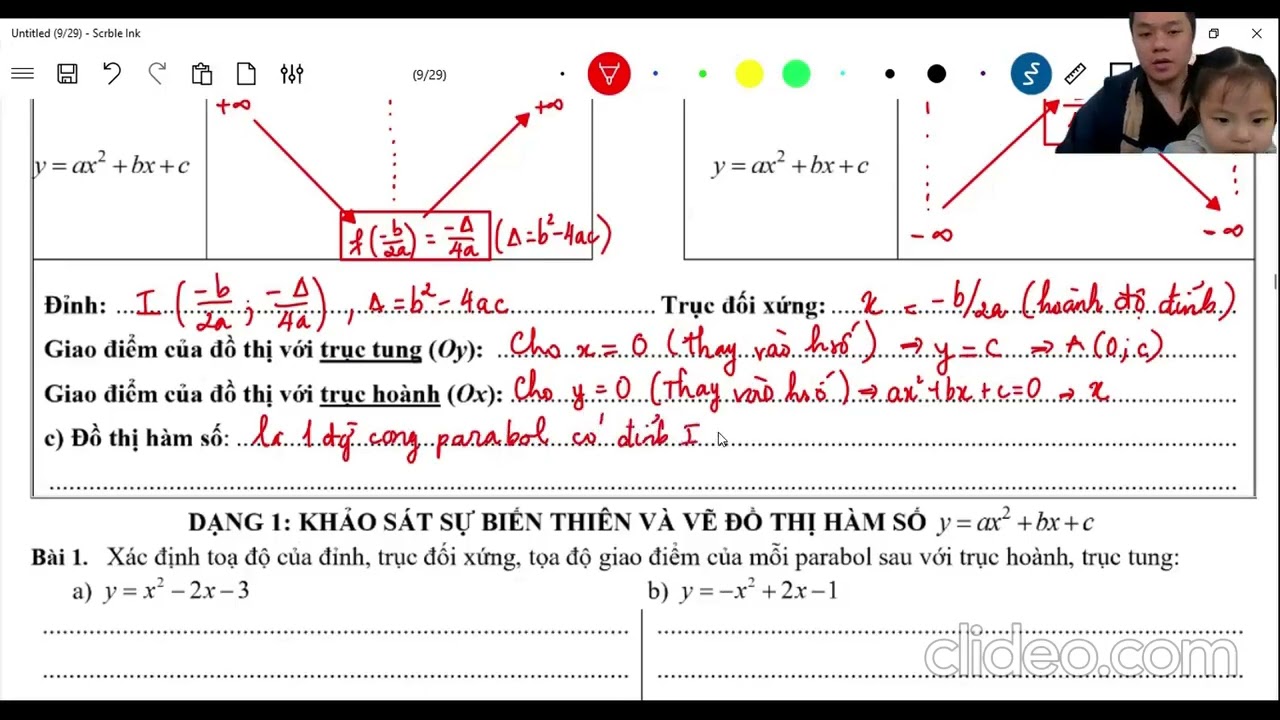 Untitled (9/29) - Scrble Ink
(9/29)
+∞ +∞
y = ax² + bx + c
f(-b/2a) = -Δ/4a (Δ = b² - 4ac)
y = ax² + bx + c
-∞ -∞
Đỉnh: I (-b/2a ; -Δ/4a), Δ = b² - 4ac Trục đối xứng: x = -b/2a (hoành độ đỉnh).
Giao điểm của đồ thị với trục tung (Oy): Cho x = 0 (Thay vào hsố) → y = c ⇒ A (0; c)
Giao điểm của đồ thị với trục hoành (Ox): Cho y = 0 (Thay vào hsố) → ax² + bx + c = 0 → x
c) Đồ thị hàm số: là 1 đg cong parabol có đỉnh I
DẠNG 1: KHẢO SÁT SỰ BIẾN THIÊN VÀ VẼ ĐỒ THỊ HÀM SỐ y = ax² + bx + c
Bài 1. Xác định toạ độ của đỉnh, trục đối xứng, tọa độ giao điểm của mỗi parabol sau với trục hoành, trục tung:
a) y = x² - 2x - 3 b) y = -x² + 2x - 1
clideo.com